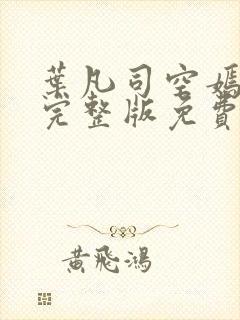 葉凡司空嫣
完整版免費
黃飛鴻